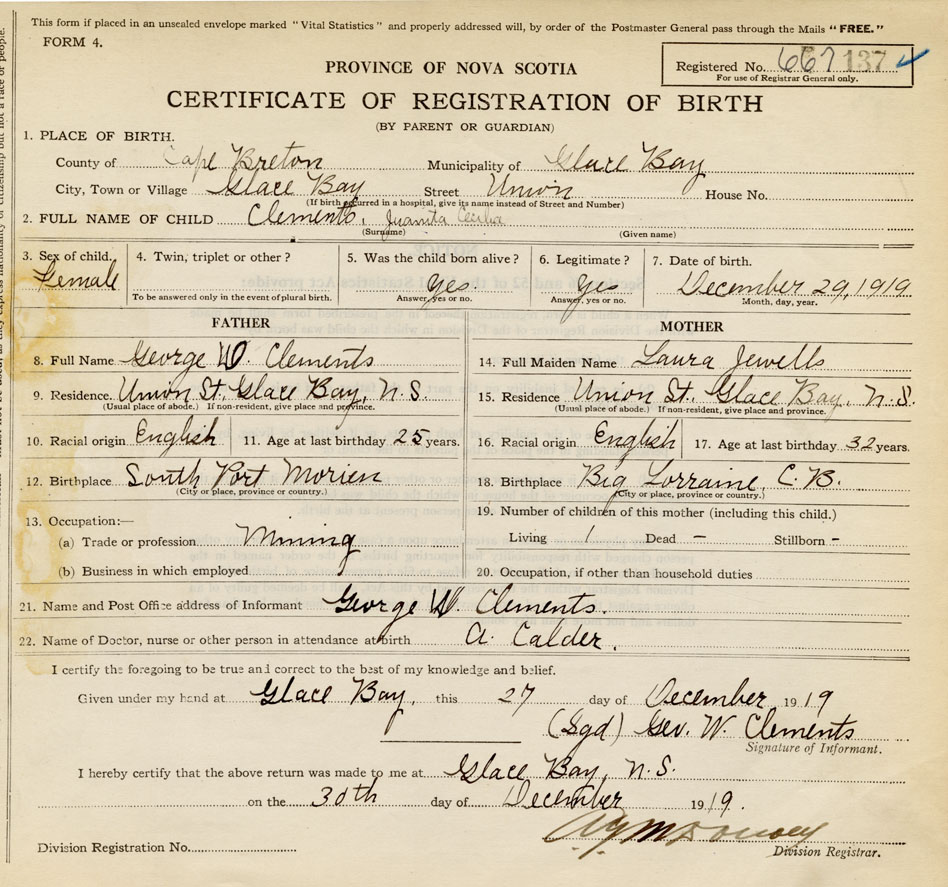 This form if placed in an unsealed envelope marked "Vital Statistics" and properly addressed will, by order of the Postmaster General pass through the Mails "FREE."
FORM 4.
Registered No. 667137
For use of Registrar General only.
PROVINCE OF NOVA SCOTIA
CERTIFICATE OF REGISTRATION OF BIRTH
(BY PARENT OR GUARDIAN)
1. PLACE OF BIRTH.
County of Cape Breton Municipality of Glace Bay
City, Town or Village Glace Bay Street Union House No.
(If birth occurred in a hospital, give its name instead of Street and Number)
2. FULL NAME OF CHILD Clements, Juanita Cecilia
(Surname) (Given name)
3. Sex of child. Female 4. Twin, triplet or other? 5. Was the child born alive? Yes. 6. Legitimate? Yes 7. Date of birth. December 29, 1919
To be answered only in the event of plural birth. Answer, yes or no. Answer, yes or no. Month, day, year.
FATHER MOTHER
8. Full Name George W. Clements 14. Full Maiden Name Laura Jewells
9. Residence. Union St., Glace Bay, N.S. 15. Residence Union St., Glace Bay, N.S.
(Usual place of abode.) If non-resident, give place and province. (Usual place of abode.) If non-resident, give place and province.
10. Racial origin English 11. Age at last birthday 25 years. 16. Racial origin English 17. Age at last birthday 32 years.
12. Birthplace South Port Morien 18. Birthplace Big Lorraine, C.B.
(City or place, province or country.) (City or place, province or country.)
13. Occupation:— 19. Number of children of this mother (including this child.)
(a) Trade or profession Mining Living 1 Dead – Stillborn –
(b) Business in which employed 20. Occupation, if other than household duties
21. Name and Post Office address of Informant George W. Clements.
22. Name of Doctor, nurse or other person in attendance at birth A. Calder.
I certify the foregoing to be true and correct to the best of my knowledge and belief.
Given under my hand at Glace Bay, this 27 day of December 1919
(Sgd) Geo. W. Clements
Signature of Informant.
I hereby certify that the above return was made to me at Glace Bay, N.S.
on the 30th day of December 1919.
Division Registration No.
Division Registrar.